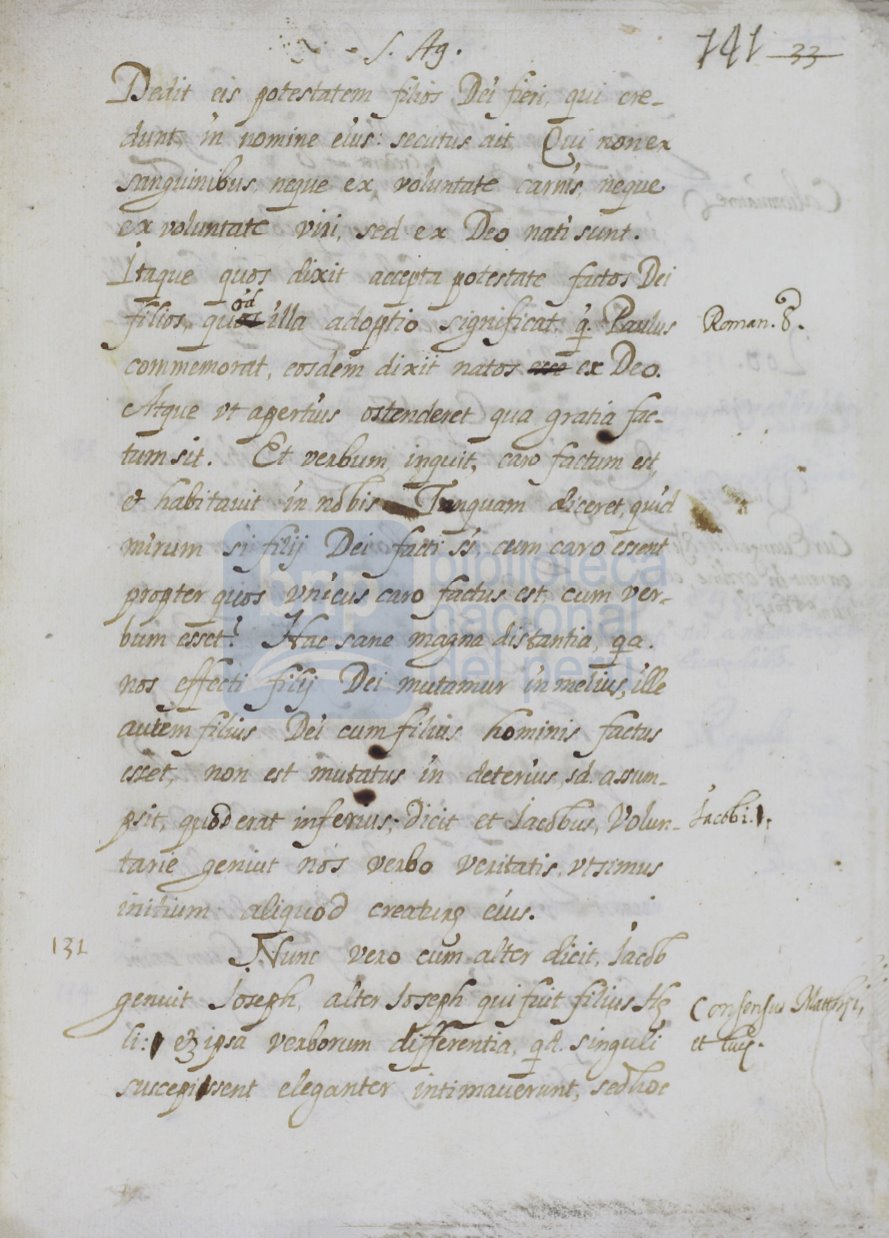 S. Ag.
741 33
Dedit eis potestatem filios Dei fieri, qui cre-
dunt in nomine eius: secutus ait. Qui non ex
sanguinibus, neque ex voluntate carnis, neque
ex voluntate viri, sed ex Deo nati sunt.
Itaque quos dixit accepta potestate factos Dei
filios, quod illa adoptio significat, q̃ Paulus
Roman. 8.
commemorat, eosdem dixit natos ex Deo.
Atque vt apertius ostenderet qua gratia fac-
tum sit. Et verbum, inquit, caro factum est,
et habitauit in nobis Tanquam diceret, quid
mirum si filij Dei facti st̃, cum caro essent
propter quos vnicus caro factus est, cum ver-
bum esset? Hac sane magna distantia, qa.
nos effecti filij Dei mutamur in melius, ille
autem filius Dei cum filius hominis factus
esset, non est mutatus in deterius, sd. assum-
psit, quod erat inferius; Dicit et Jacobus, Volun-
Jacobi. 1.
tarie genuit nos verbo veritatis, vt simus
initium aliquod creaturę eius.
131
Nunc vero cum alter dicit, Jacob
genuit Joseph, alter Joseph qui fuit filius Hę
Consensus Matthęi,
li: ex ipsa verborum differentia, qd. singuli
et Lucę.
suscepissent eleganter intimauerunt, sed hoc
biblioteca
nacional
del perú
bnp